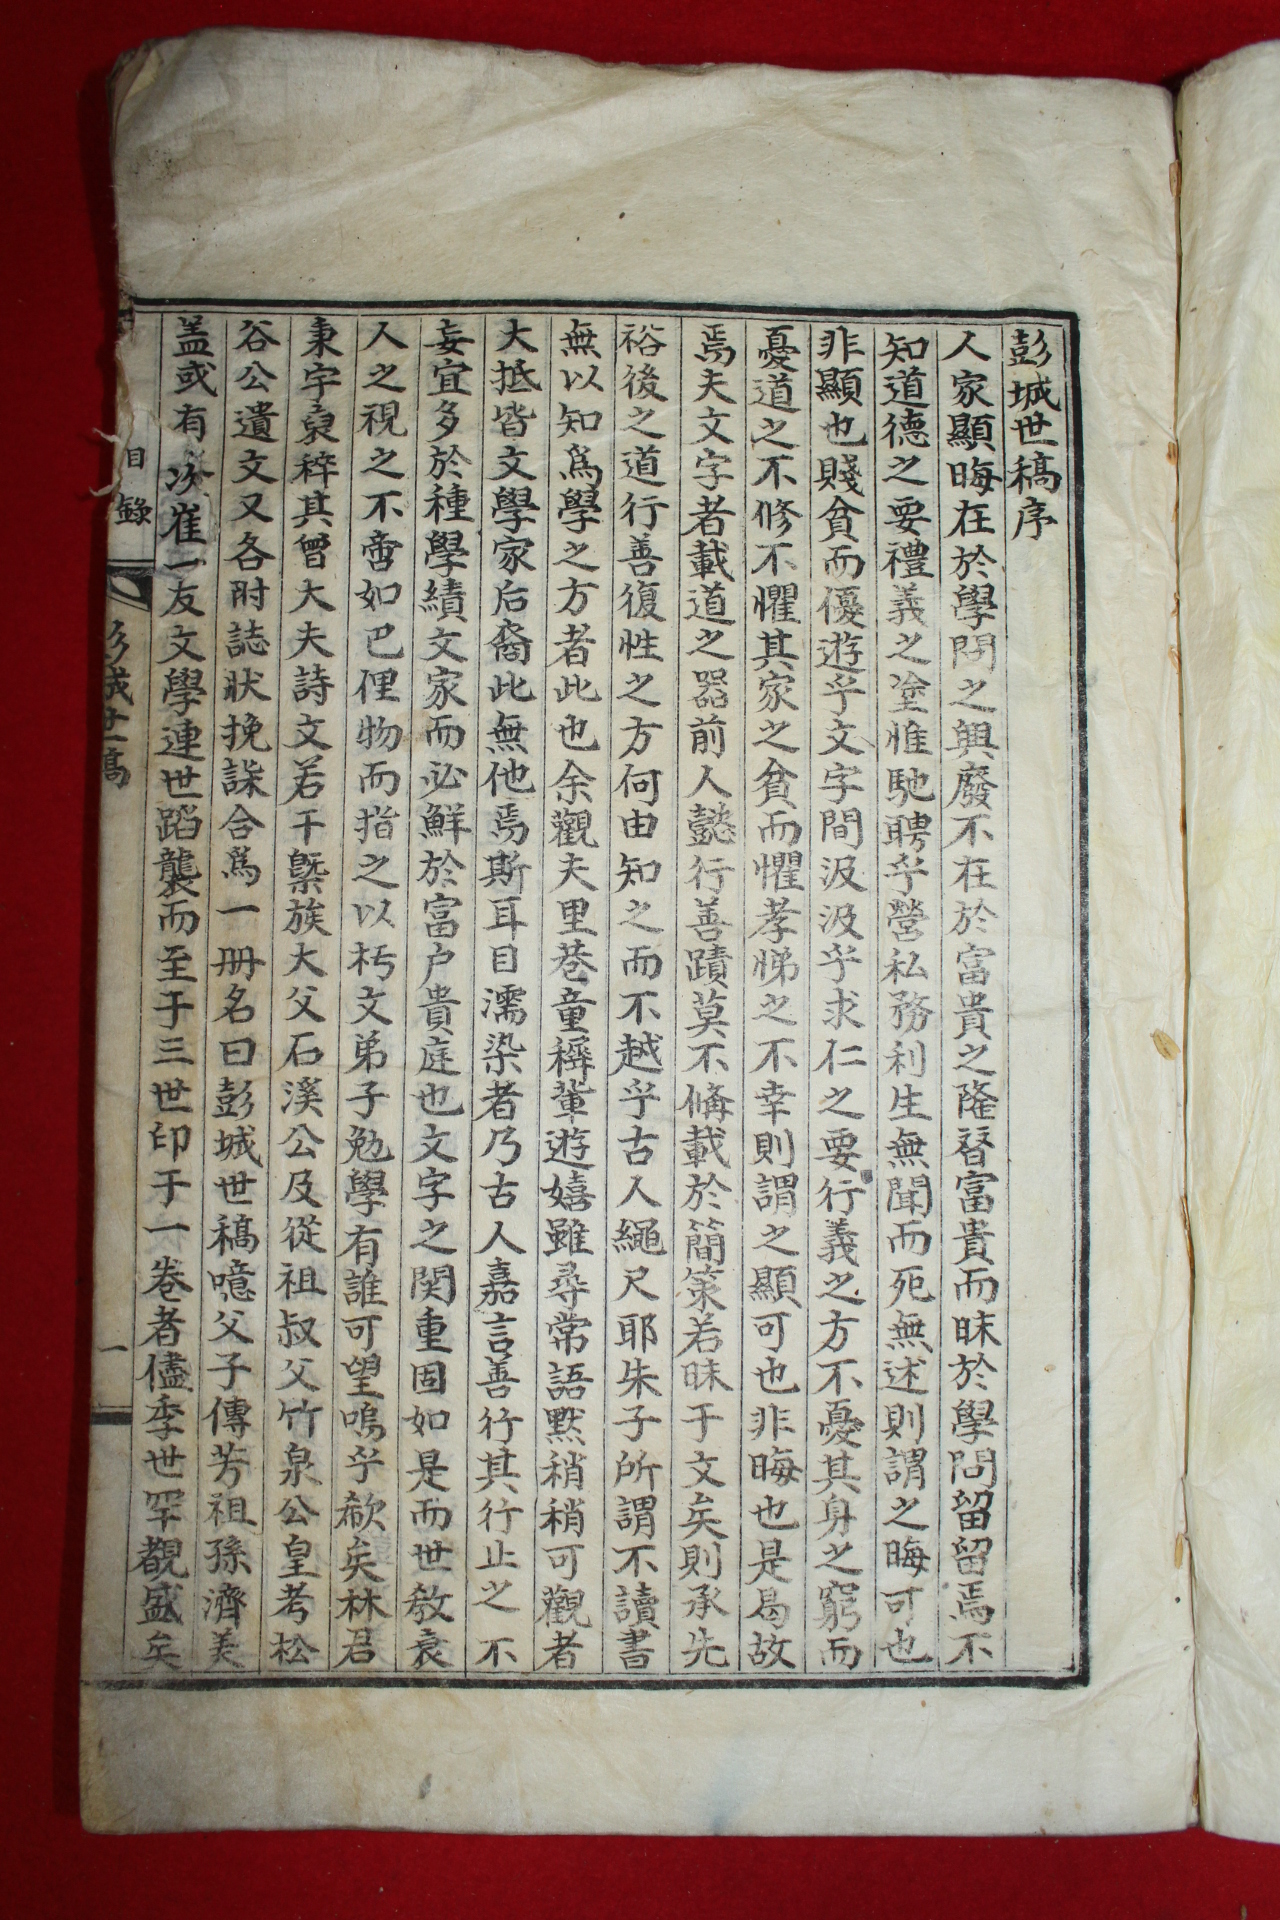 彭城世稿序
人家顯晦在於學問之興廢不在於富貴之隆替富貴而昧於學問留留焉不
知道德之要禮義之塗惟馳聘乎營私務利生無聞而死無述則謂之晦可也
非顯也賤貧而優遊乎文字間汲汲乎求仁之要行義之方不憂其身之窮而
憂道之不修不懼其家之貧而懼孝悌之不幸則謂之顯可也非晦也是曷故
焉夫文字者載道之器前人懿行善蹟莫不俻載於簡策若昧于文矣則承先
裕後之道行善復性之方何由知之而不越乎古人繩尺耶朱子所謂不讀書
無以知爲學之方者此也余觀夫里巷童穉輩遊嬉雖尋常語默稍稍可觀者
大抵皆文學家后裔此無他焉斯耳目濡染者乃古人嘉言善行其行止之不
妄宜多於種學績文家而必鮮於富户貴庭也文字之関重固如是而世敎衰
人之視之不啻如巴俚物而指之以朽文弟子勉學有誰可望嗚乎欷矣林君
秉宇裒稡其曾大夫詩文若干槩族大父石溪公及從祖叔父竹泉公皇考松
谷公遺文又各附誌狀挽誄合爲一册名曰彭城世稿噫父子傳芳祖孫濟美
盖或有次崔一友文學連世蹈襲而至于三世印于一卷者儘季世罕覩盛矣
目錄
彭城世稿
一